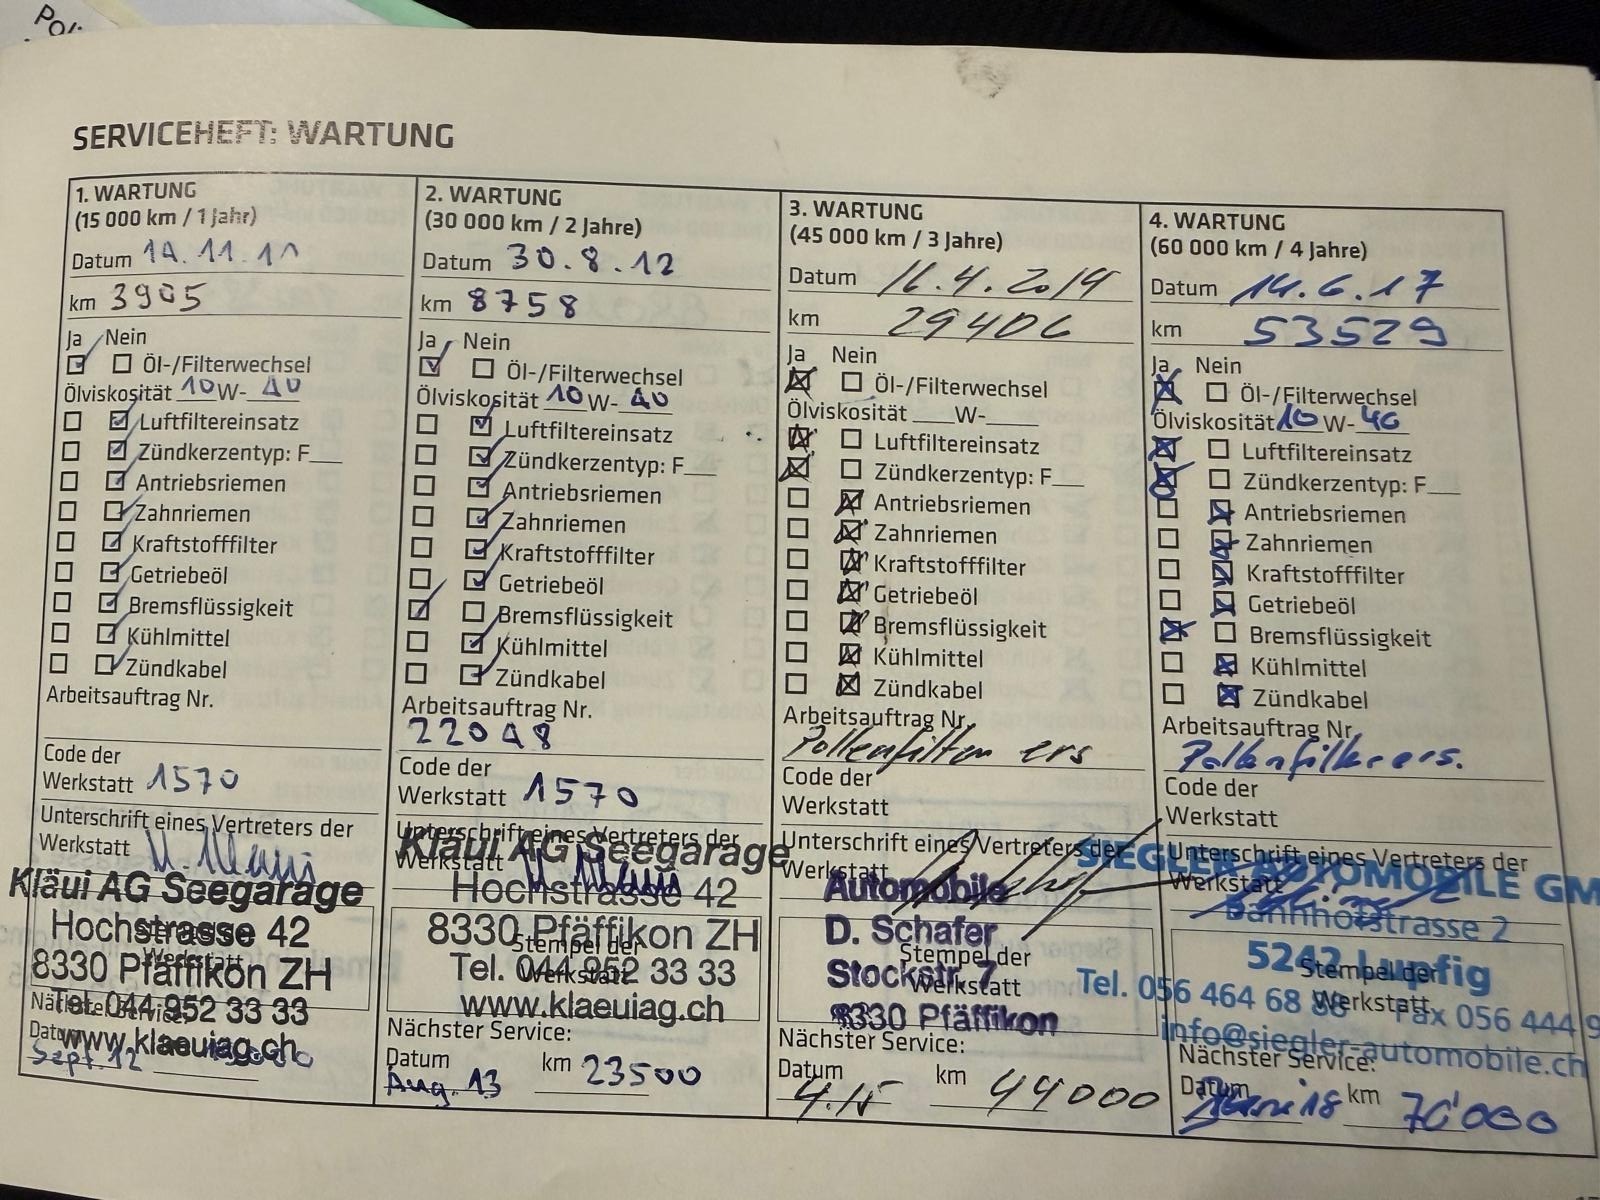 SERVICEHEFT: WARTUNG
1. WARTUNG
(15 000 km / 1 Jahr)
Datum 14.11.11
km 3905
Ja Nein
Öl-/Filterwechsel
Ölviskosität 10 W- 40
Luftfiltereinsatz
Zündkerzentyp: F__
Antriebsriemen
Zahnriemen
Kraftstofffilter
Getriebeöl
Bremsflüssigkeit
Kühlmittel
Zündkabel
Arbeitsauftrag Nr.
Code der
Werkstatt 1570
Unterschrift eines Vertreters der
Werkstatt
Kläui AG Seegarage
Hochstrasse 42
8330 Pfäffikon ZH
Tel. 044 952 33 33
www.klaeuiag.ch
Stempel der
Werkstatt
Nächster Service:
Datum
Sept. 12
2. WARTUNG
(30 000 km / 2 Jahre)
Datum 30.8.12
km 8758
Ja Nein
Öl-/Filterwechsel
Ölviskosität 10 W- 40
Luftfiltereinsatz
Zündkerzentyp: F__
Antriebsriemen
Zahnriemen
Kraftstofffilter
Getriebeöl
Bremsflüssigkeit
Kühlmittel
Zündkabel
Arbeitsauftrag Nr.
22048
Code der
Werkstatt 1570
Unterschrift eines Vertreters der
Werkstatt
Kläui AG Seegarage
Hochstrasse 42
8330 Pfäffikon ZH
Tel. 044 952 33 33
www.klaeuiag.ch
Stempel der
Werkstatt
Nächster Service:
Datum km 23500
Aug. 13
3. WARTUNG
(45 000 km / 3 Jahre)
Datum 16.4.2014
km 29406
Ja Nein
Öl-/Filterwechsel
Ölviskosität ___W-___
Luftfiltereinsatz
Zündkerzentyp: F__
Antriebsriemen
Zahnriemen
Kraftstofffilter
Getriebeöl
Bremsflüssigkeit
Kühlmittel
Zündkabel
Arbeitsauftrag Nr.
Pollenfilter ers
Code der
Werkstatt
Unterschrift eines Vertreters der
Werkstatt
Automobile
D. Schafer
Stockstr. 7
8330 Pfäffikon
Stempel der
Werkstatt
Nächster Service:
Datum km 44000
4.15
4. WARTUNG
(60 000 km / 4 Jahre)
Datum 14.6.17
km 53529
Ja Nein
Öl-/Filterwechsel
Ölviskosität 10 W- 40
Luftfiltereinsatz
Zündkerzentyp: F__
Antriebsriemen
Zahnriemen
Kraftstofffilter
Getriebeöl
Bremsflüssigkeit
Kühlmittel
Zündkabel
Arbeitsauftrag Nr.
Pollenfilter ers.
Code der
Werkstatt
Unterschrift eines Vertreters der
Werkstatt
SIEGLER AUTOMOBILE GM
Bahnhofstrasse 2
5242 Lupfig
Tel. 056 464 68 88 Fax 056 444 9
info@siegler-automobile.ch
Stempel der
Werkstatt
Nächster Service:
Datum 18 km 70'000